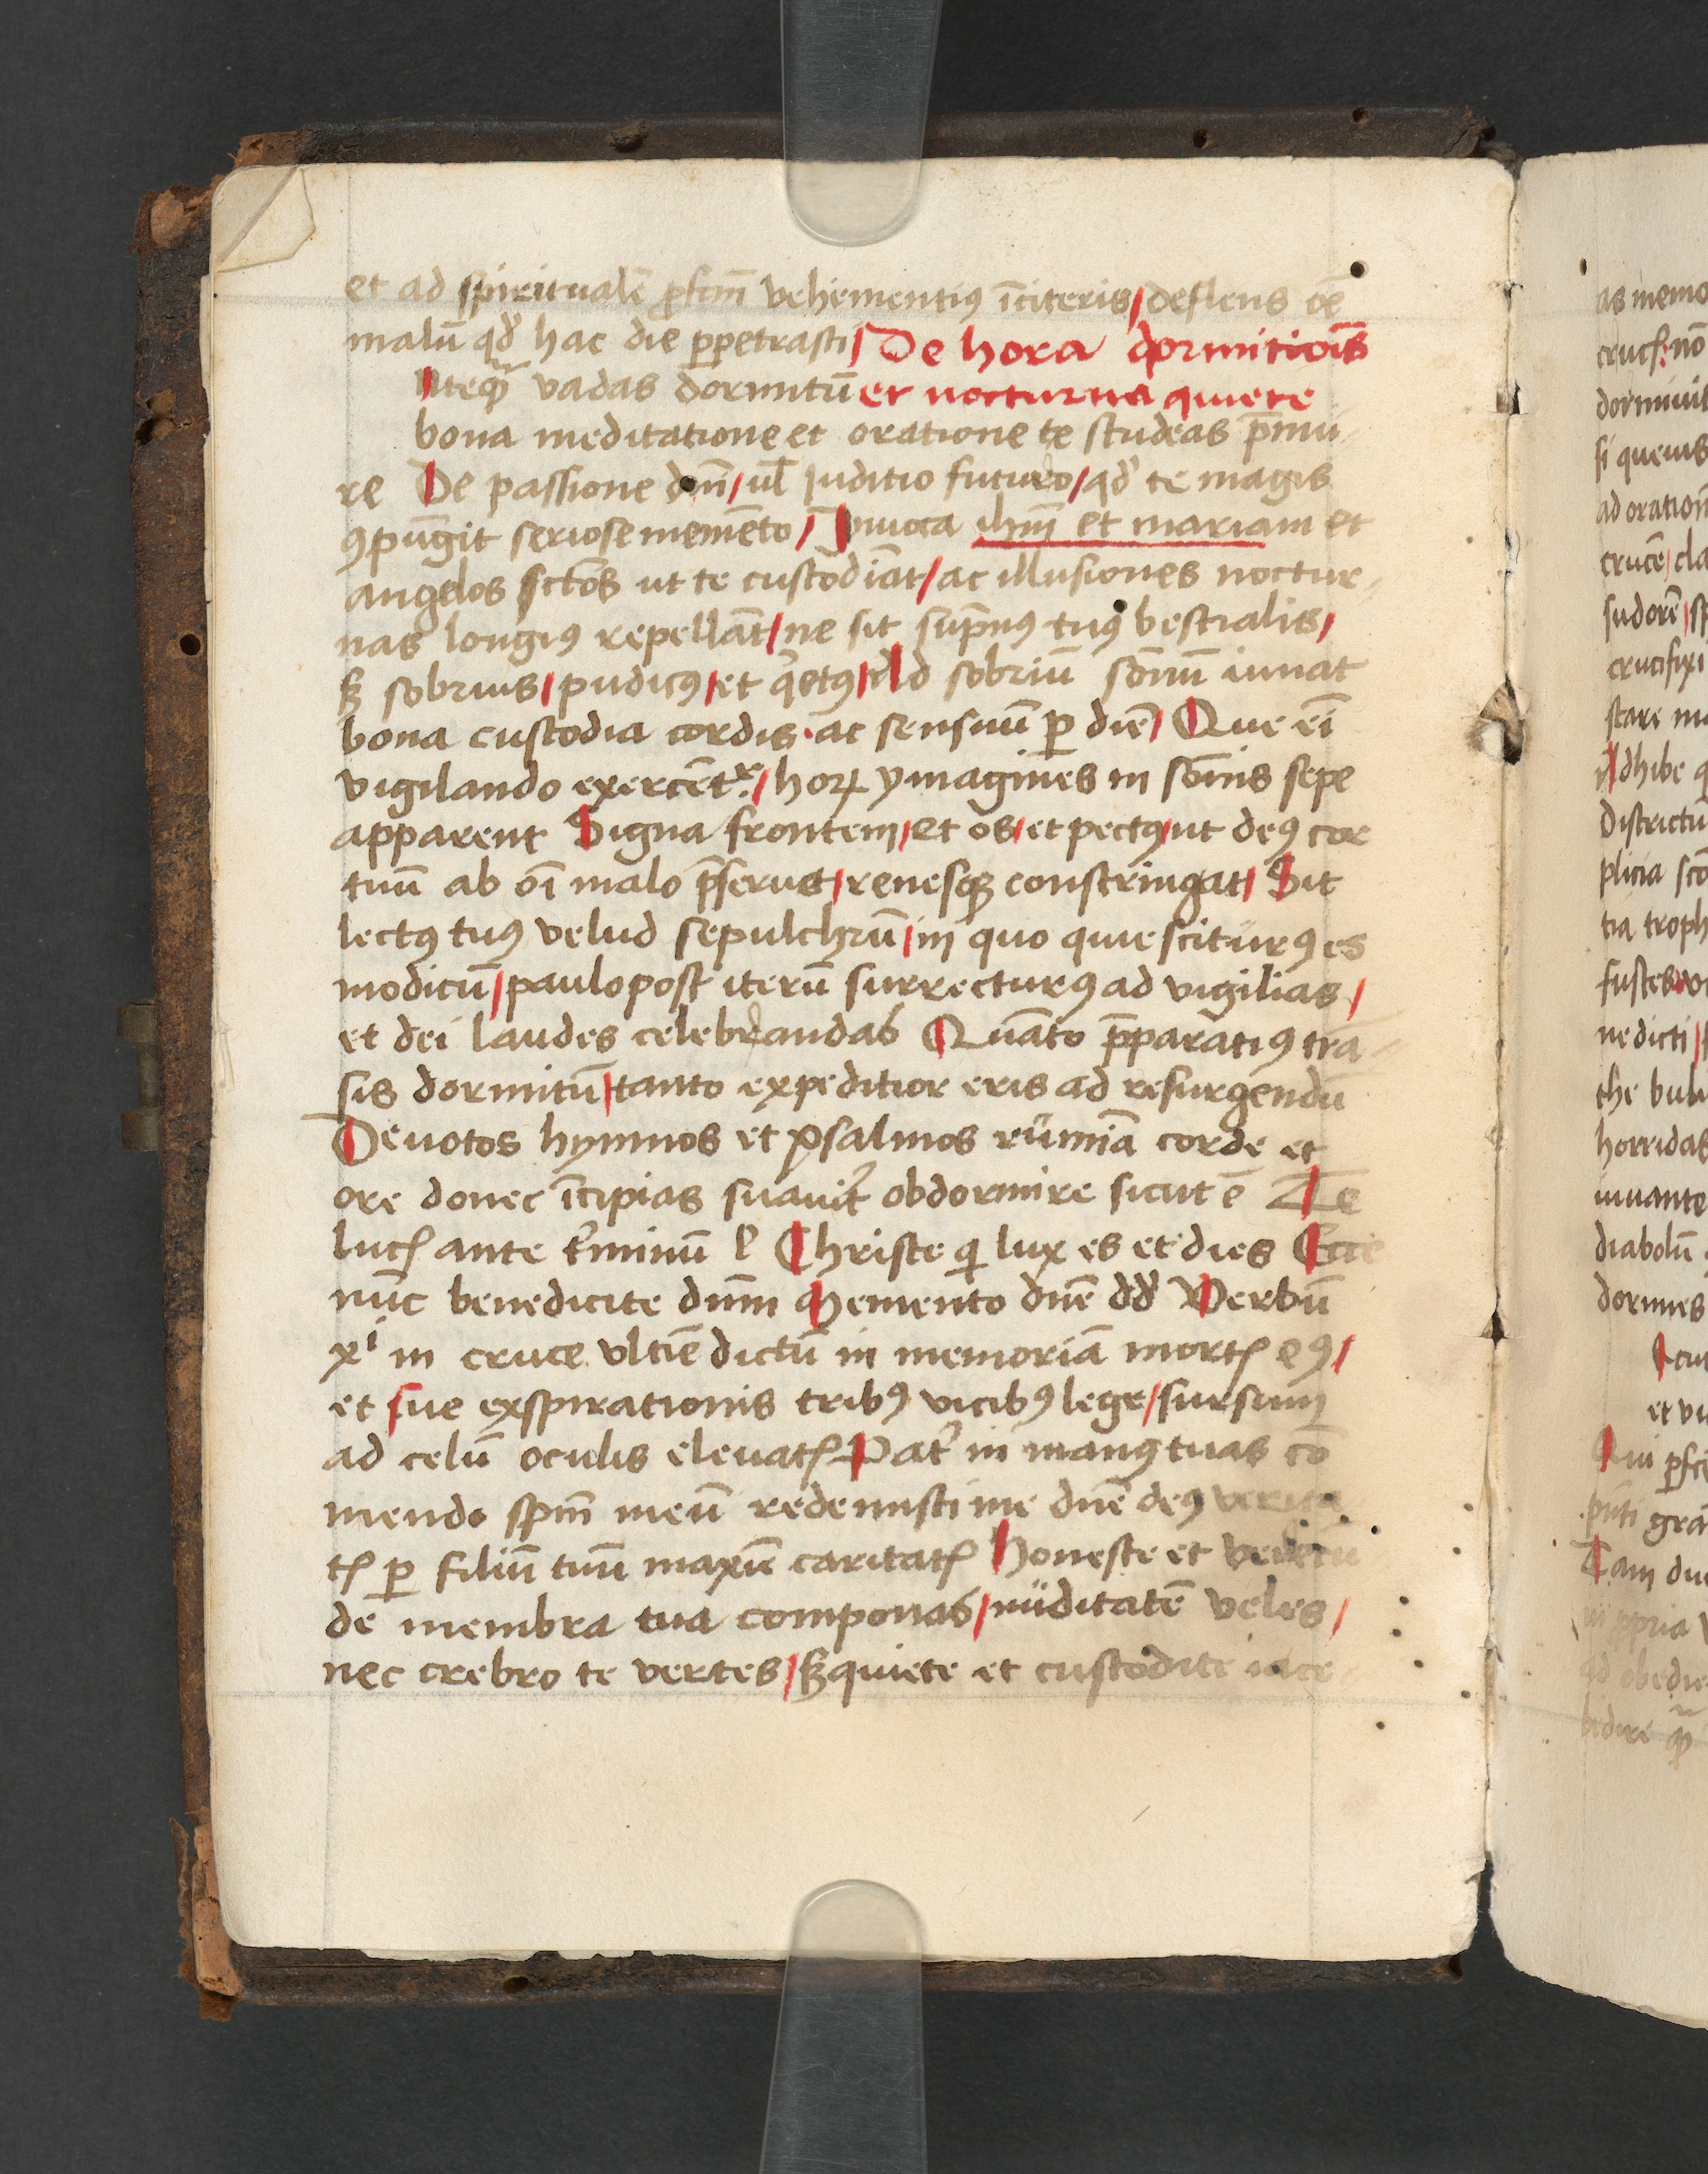 et ad spiritualē ꝓfcm̄ vehementiꝰ īciteris/ deflens oē
malū qd̓ hac die ꝑpetrasti/ De hora dormitiōīs
Nteqͣ̄ vadas dormitū et nocturna quiete
bona meditatione et oratione te studeas p̄mu
re De passione dnī/ ul̄ Iuditio futuro/ qd̓ te magis
ꝯpūgit seriose memēto/ Inuoca ihm̄ et mariam et
angelos sctōs ut te custodiāt/ ac illusiones noctur
nas longiꝰ repellāt/ ne sit sūpnꝰ tuꝰ bestialis/
sꝫ sobrius/ pudicꝰ/ et qͥetꝰ/ Ad sobriū sōnū iuuat
bona custodia cordis ac sensuū ꝑ diē/ Que eī
vigilando exercēt̄ͬ/ hoꝝ ymagines in sōnis sepe
apparent Signa frontem/ et os/ et pectꝰ/ ut deꝰ cor
tuū ab oī malo p̄seruet/ renesqꝫ constringat/ Sit
lectꝰ tuꝰ velud sepulchrū/ in quo quiesciturꝰ es
modicū/ paulopost iterū surrecturꝰ ad vigilias/
et dei laudes celebrandas Quāto p̄paratiꝰ trā
sis dormitū/ tanto expeditior eris ad resurgendū
Deuotos hymnos et psalmos rumīa corde et
ore donec īcipias suauit̓ obdormire sicut ē Te
lucꝭ ante t̓minū l̓ Christe qͥ lux es et dies Ecce
nūc benedicite dnm̄ Memento dnē dd̓ Verbū
xͥ in cruce vltiē dictū in memoriā mortꝭ eꝰ/
et sue exspirationis tribꝰ vicibꝰ lege/ sursum
ad celū oculis eleuatꝭ Pat̓ in manꝰ tuas cō
mendo spm̄ meū redemisti me dnē deꝰ verita
tꝭ ꝑ filiū tuū maxīe caritatꝭ Honeste et verecū
de membra tua componas/ nuditatē veles/
nec crebro te vertes/ sꝫ quiete et custodite iace